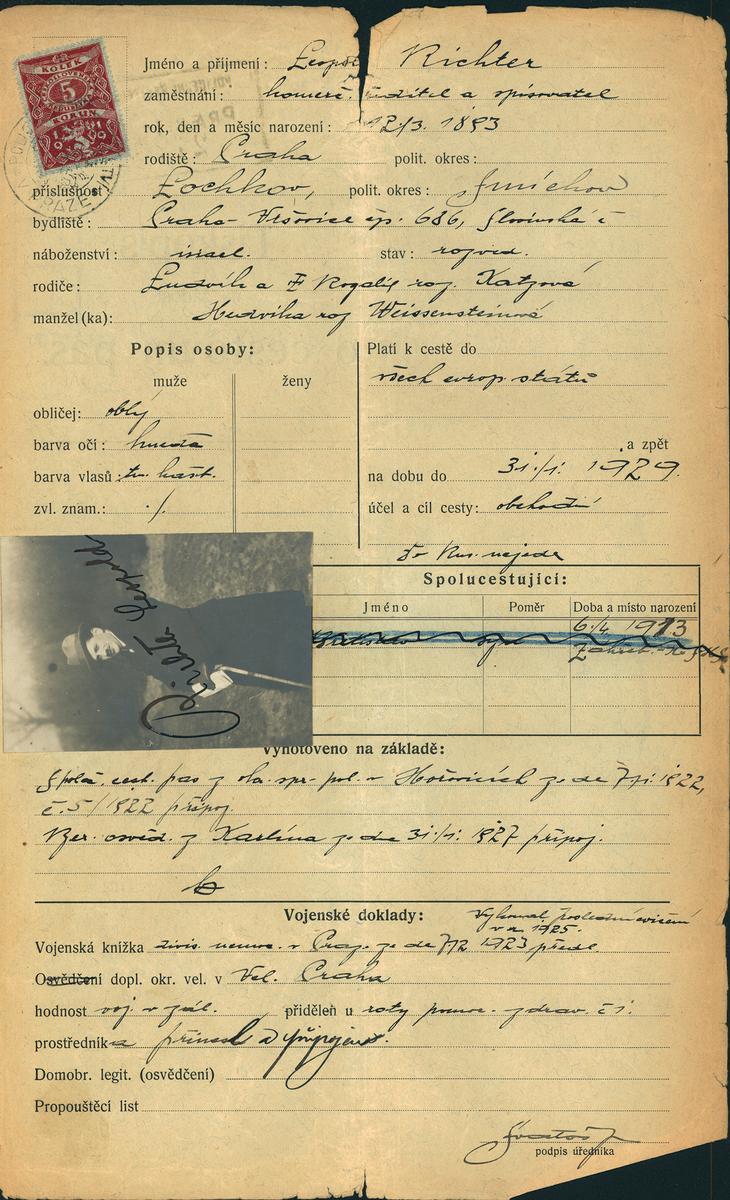 KOLEK
5
KORUN
1919
Jméno a příjmení: Leopold Richter
zaměstnání: a spisovatel
rok, den a měsíc narození: 12./3. 1893
rodiště: Praha polit. okres:
příslušnost: Lochkov, polit. okres: Smíchov
bydliště: Praha-Vršovice čp. 686, Slovinská č
náboženství: israel. stav: rozved.
rodiče: Ludvík a Rozalie roz. Katzová
manžel(ka): Hedvika roz Weissensteinová
Popis osoby:
muže ženy
obličej: oblý
barva očí: hnědá
barva vlasů: tm. kašt.
zvl. znam.: ./.
Platí k cestě do
všech evrop. států
a zpět
na dobu do 31./1. 1929.
účel a cíl cesty: obchodní
do Rus. nejede
Richter Leopold
Spolucestující:
Jméno Poměr Doba a místo narození
6./4. 1913
syn
Vyhotoveno na základě:
Společ. cest. pas z ok. spr. pol. v Hořovicích ze dne 7./1. 1922,
č. 5/1922 připoj.
Ber. osvěd. z Karlína ze dne 31./1. 1927 připoj.
Vojenské doklady:
Vykonal poslední cvičení
v r. 1925.
Vojenská knížka divis. nemoc. v Praze ze dne 7/2 1923 předl.
Osvědčení dopl. okr. vel. v Vel. Praha
hodnost voj. v zál. přidělen u roty pomoc. zdrav. č 1.
prostředník a přinesl a připojeno.
Domobr. legit. (osvědčení)
Propouštěcí list
podpis úředníka